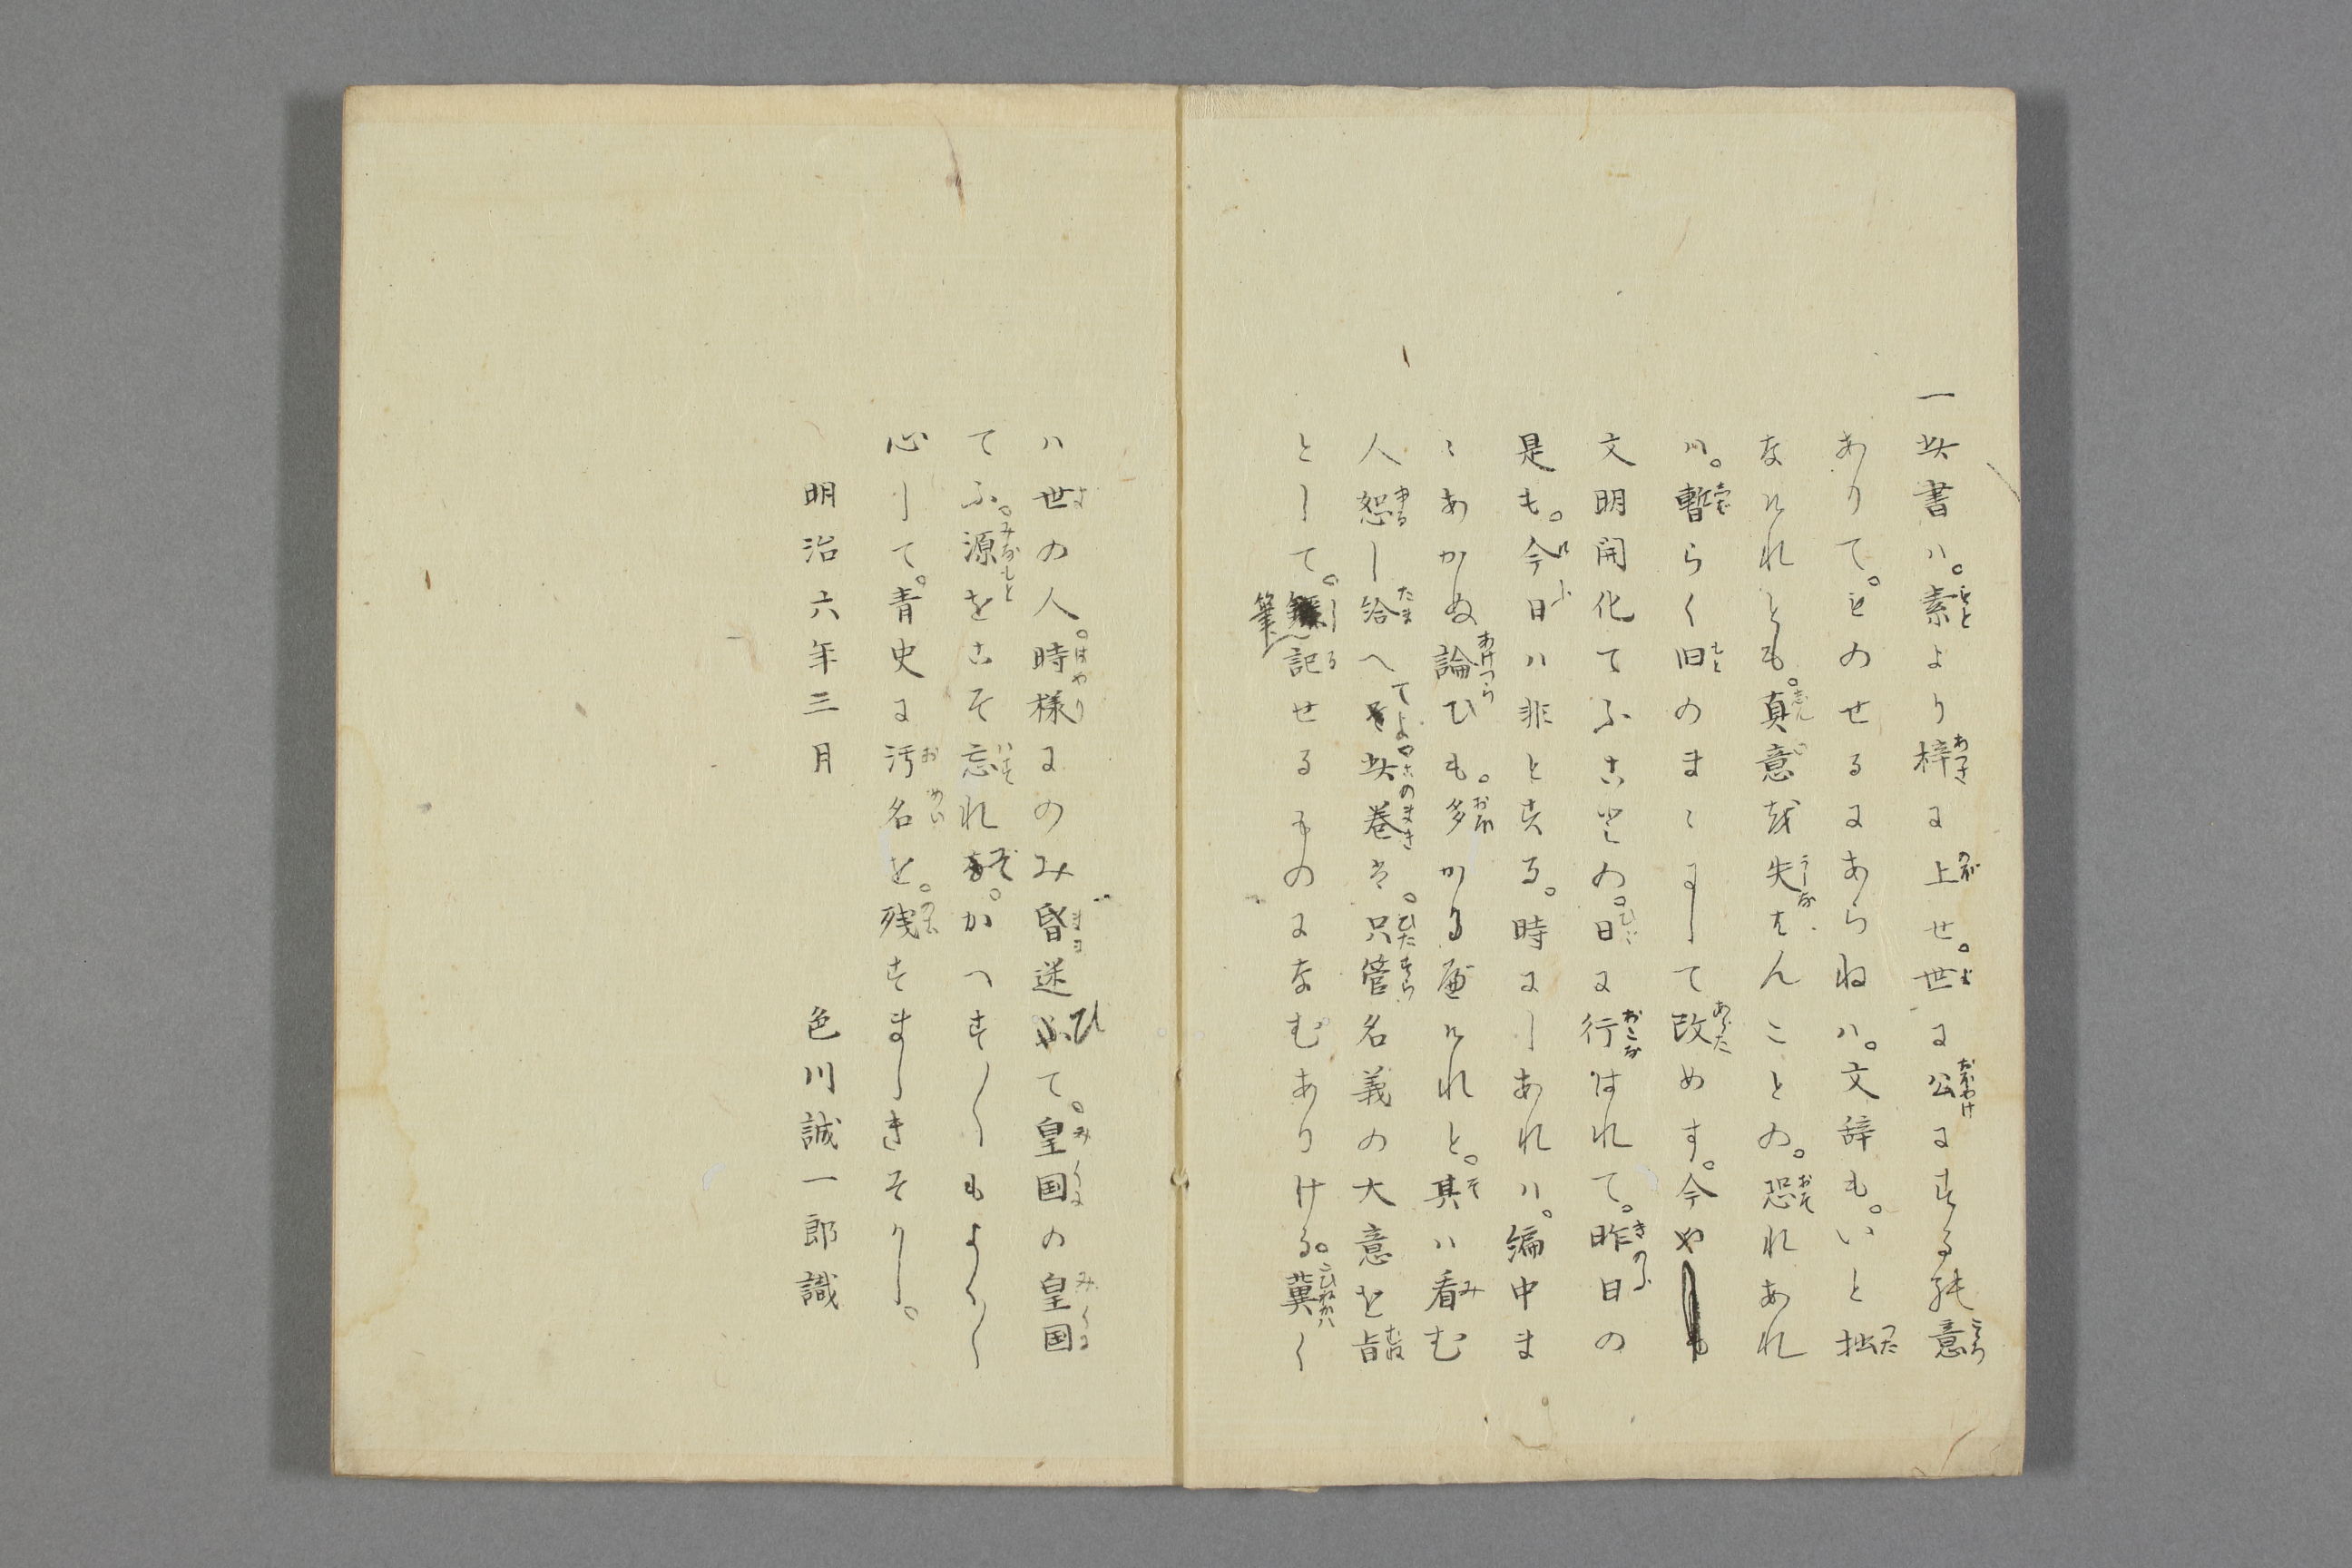 一此書ハ。素より梓に上せ。世に公にする純意
ありて。ものせるにあらねハ。文辞も。いと拙
なけれとも。真意を失はんことの。恐れあれ
ハ。暫らく旧のまゝにして改めす。今や
文明開化てふことの。日に行はれて。昨日の
是も。今日ハ非となる。時にしあれハ。編中ま
ゝあかぬ論ひも。多かるべけれと。其ハ看む
人恕し給へてよ。此巻は。只管名義の大意を旨
として。筆記せるものになむありける。冀く
ハ世の人。時様にのみ昏迷ひて。皇国の皇国
てふ。源をこそ忘れぞ。かへす〳〵もよく〳〵
心して。青史に汚名を。残すましきそかし。
明治六年三月
色川誠一郎識